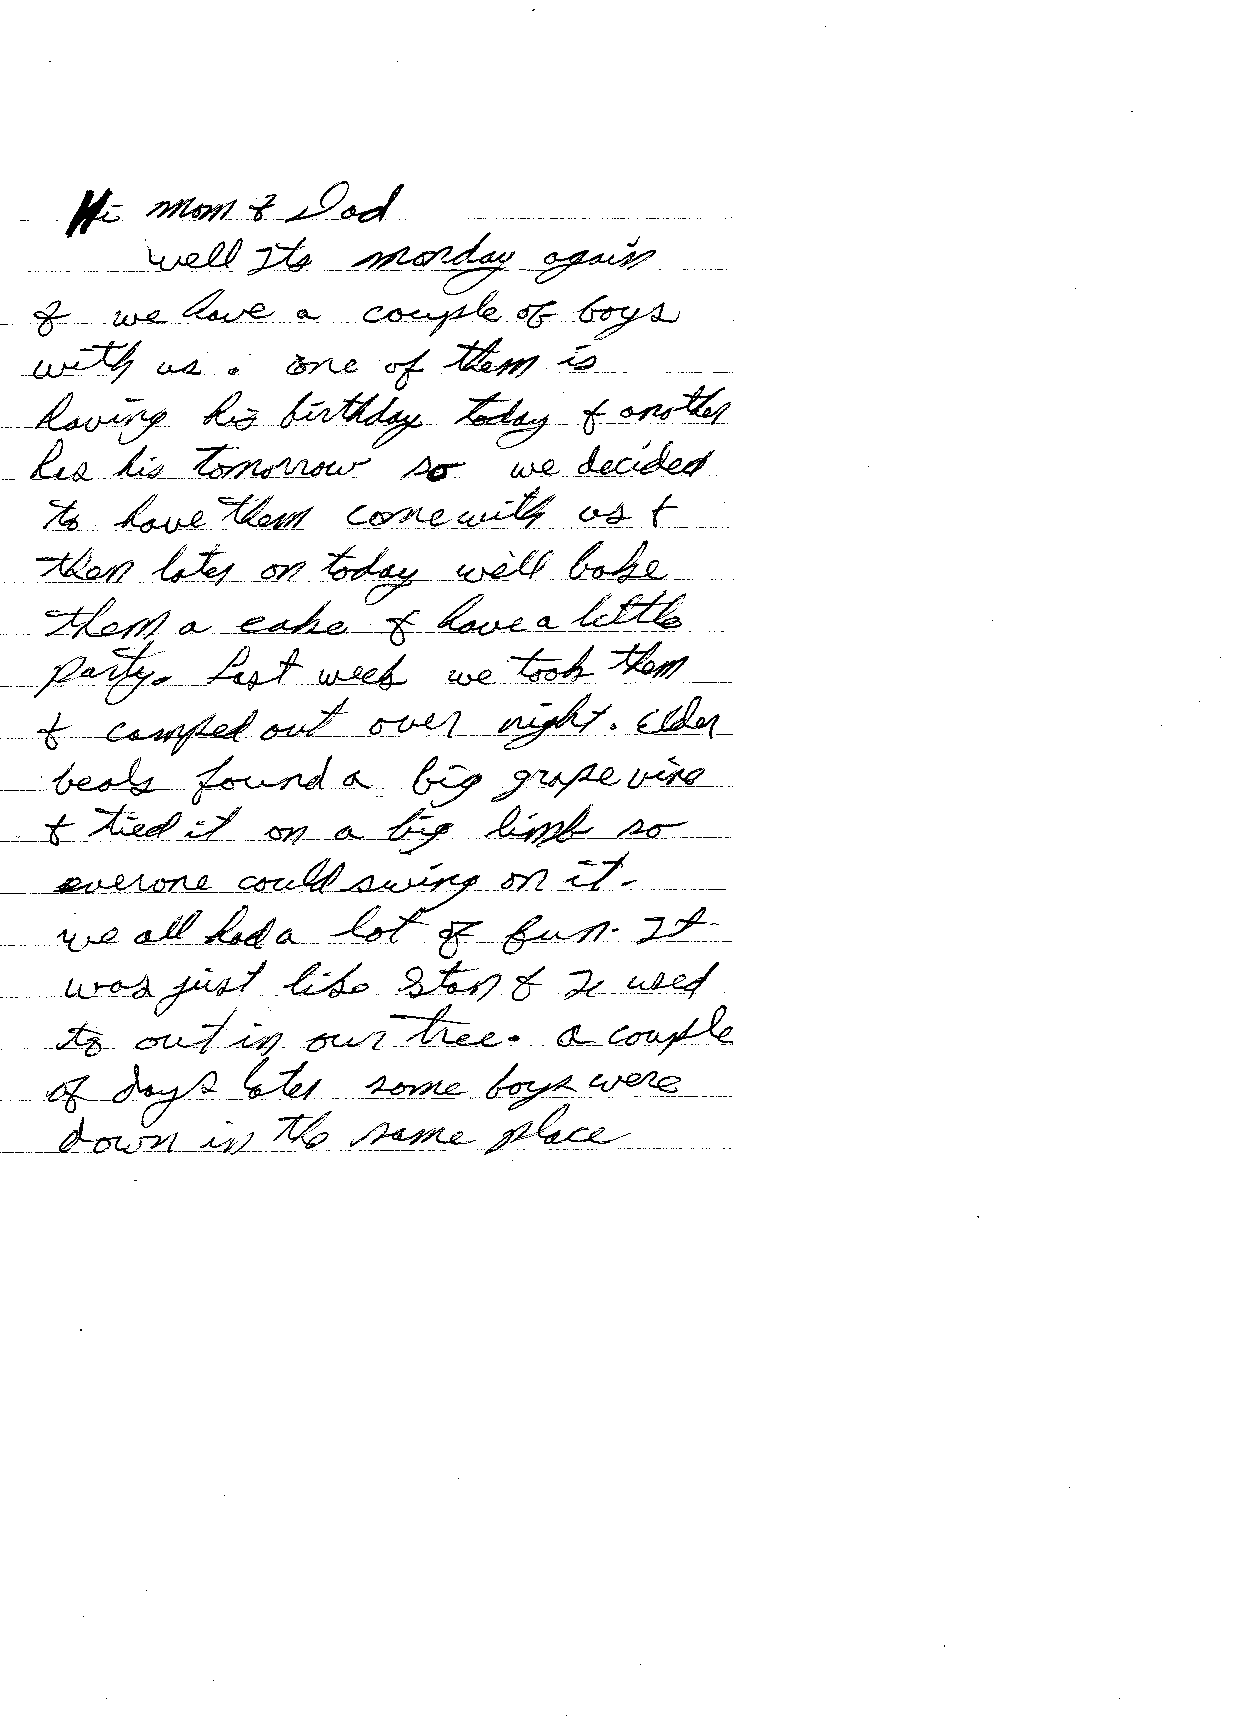 Hi mom & Dad
well Its monday again
& we have a couple of boys
with us. one of them is
having his birthday today & another
has his tomorrow so we decided
to have them come with us &
then later on today we'll bake
them a cake & have a little
party. Last week we took them
& camped out over night. Elder
beals found a big grape vine
& tied it on a big limb so
everone could swing on it.
we all had a lot of fun. It
was just like Stan & I used
to out in our tree. a couple
of days later some boys were
down in the same place